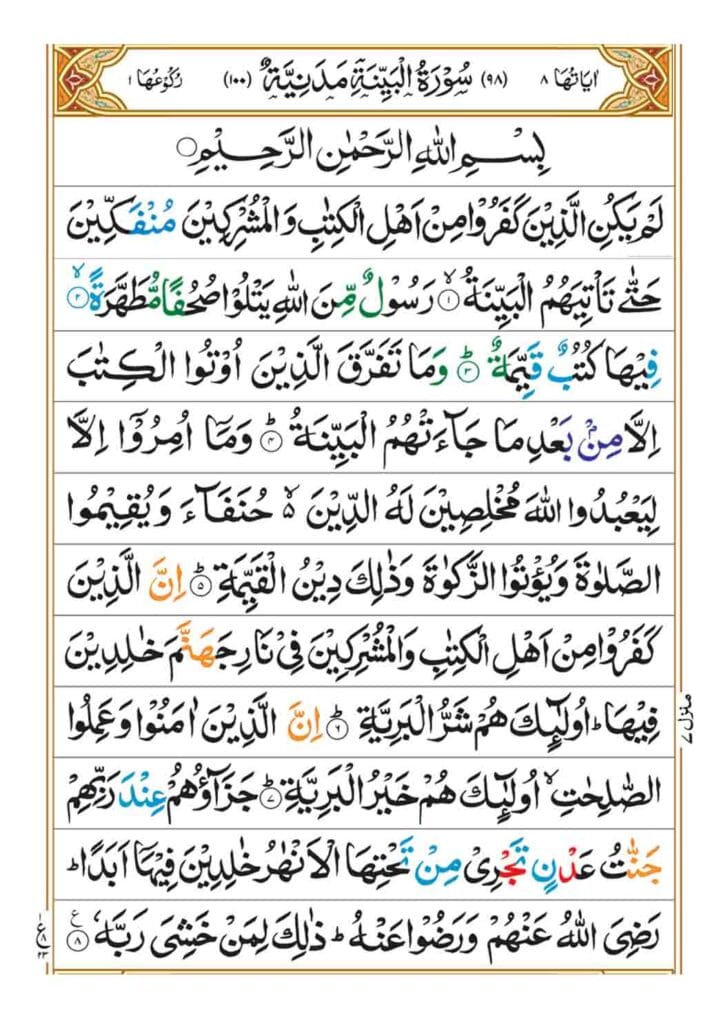 اٰيَاتُهَا ٨ (٩٨) سُوْرَةُ الْبَيِّنَةِ مَدَنِيَّةٌ (١٠٠) رُكُوْعُهَا ١
بِسْمِ اللهِ الرَّحْمٰنِ الرَّحِيْمِ ۝
لَمْ يَكُنِ الَّذِيْنَ كَفَرُوْا مِنْ اَهْلِ الْكِتٰبِ وَالْمُشْرِكِيْنَ مُنْفَكِّيْنَ
حَتّٰى تَاْتِيَهُمُ الْبَيِّنَةُ ۙ﴿١﴾ رَسُوْلٌ مِّنَ اللهِ يَتْلُوْا صُحُفًا مُّطَهَّرَةً ۙ﴿٢﴾
فِيْهَا كُتُبٌ قَيِّمَةٌ ؕ﴿٣﴾ وَمَا تَفَرَّقَ الَّذِيْنَ اُوْتُوا الْكِتٰبَ
اِلَّا مِنْۢ بَعْدِ مَا جَآءَتْهُمُ الْبَيِّنَةُ ؕ﴿٤﴾ وَمَاۤ اُمِرُوْۤا اِلَّا
لِيَعْبُدُوا اللهَ مُخْلِصِيْنَ لَهُ الدِّيْنَ ۙ۬ حُنَفَآءَ وَيُقِيْمُوا
الصَّلٰوةَ وَيُؤْتُوا الزَّكٰوةَ وَذٰلِكَ دِيْنُ الْقَيِّمَةِ ؕ﴿٥﴾ اِنَّ الَّذِيْنَ
كَفَرُوْا مِنْ اَهْلِ الْكِتٰبِ وَالْمُشْرِكِيْنَ فِيْ نَارِ جَهَنَّمَ خٰلِدِيْنَ
فِيْهَا ؕ اُولٰٓئِكَ هُمْ شَرُّ الْبَرِيَّةِ ؕ﴿٦﴾ اِنَّ الَّذِيْنَ اٰمَنُوْا وَعَمِلُوا
الصّٰلِحٰتِ ۙ اُولٰٓئِكَ هُمْ خَيْرُ الْبَرِيَّةِ ؕ﴿٧﴾ جَزَآؤُهُمْ عِنْدَ رَبِّهِمْ
جَنّٰتُ عَدْنٍ تَجْرِيْ مِنْ تَحْتِهَا الْاَنْهٰرُ خٰلِدِيْنَ فِيْهَاۤ اَبَدًا ؕ
رَضِيَ اللهُ عَنْهُمْ وَرَضُوْا عَنْهُ ؕ ذٰلِكَ لِمَنْ خَشِيَ رَبَّهٗ ﴿٨﴾ ع
منزل ٧
ع ١ ٨ ٢٣